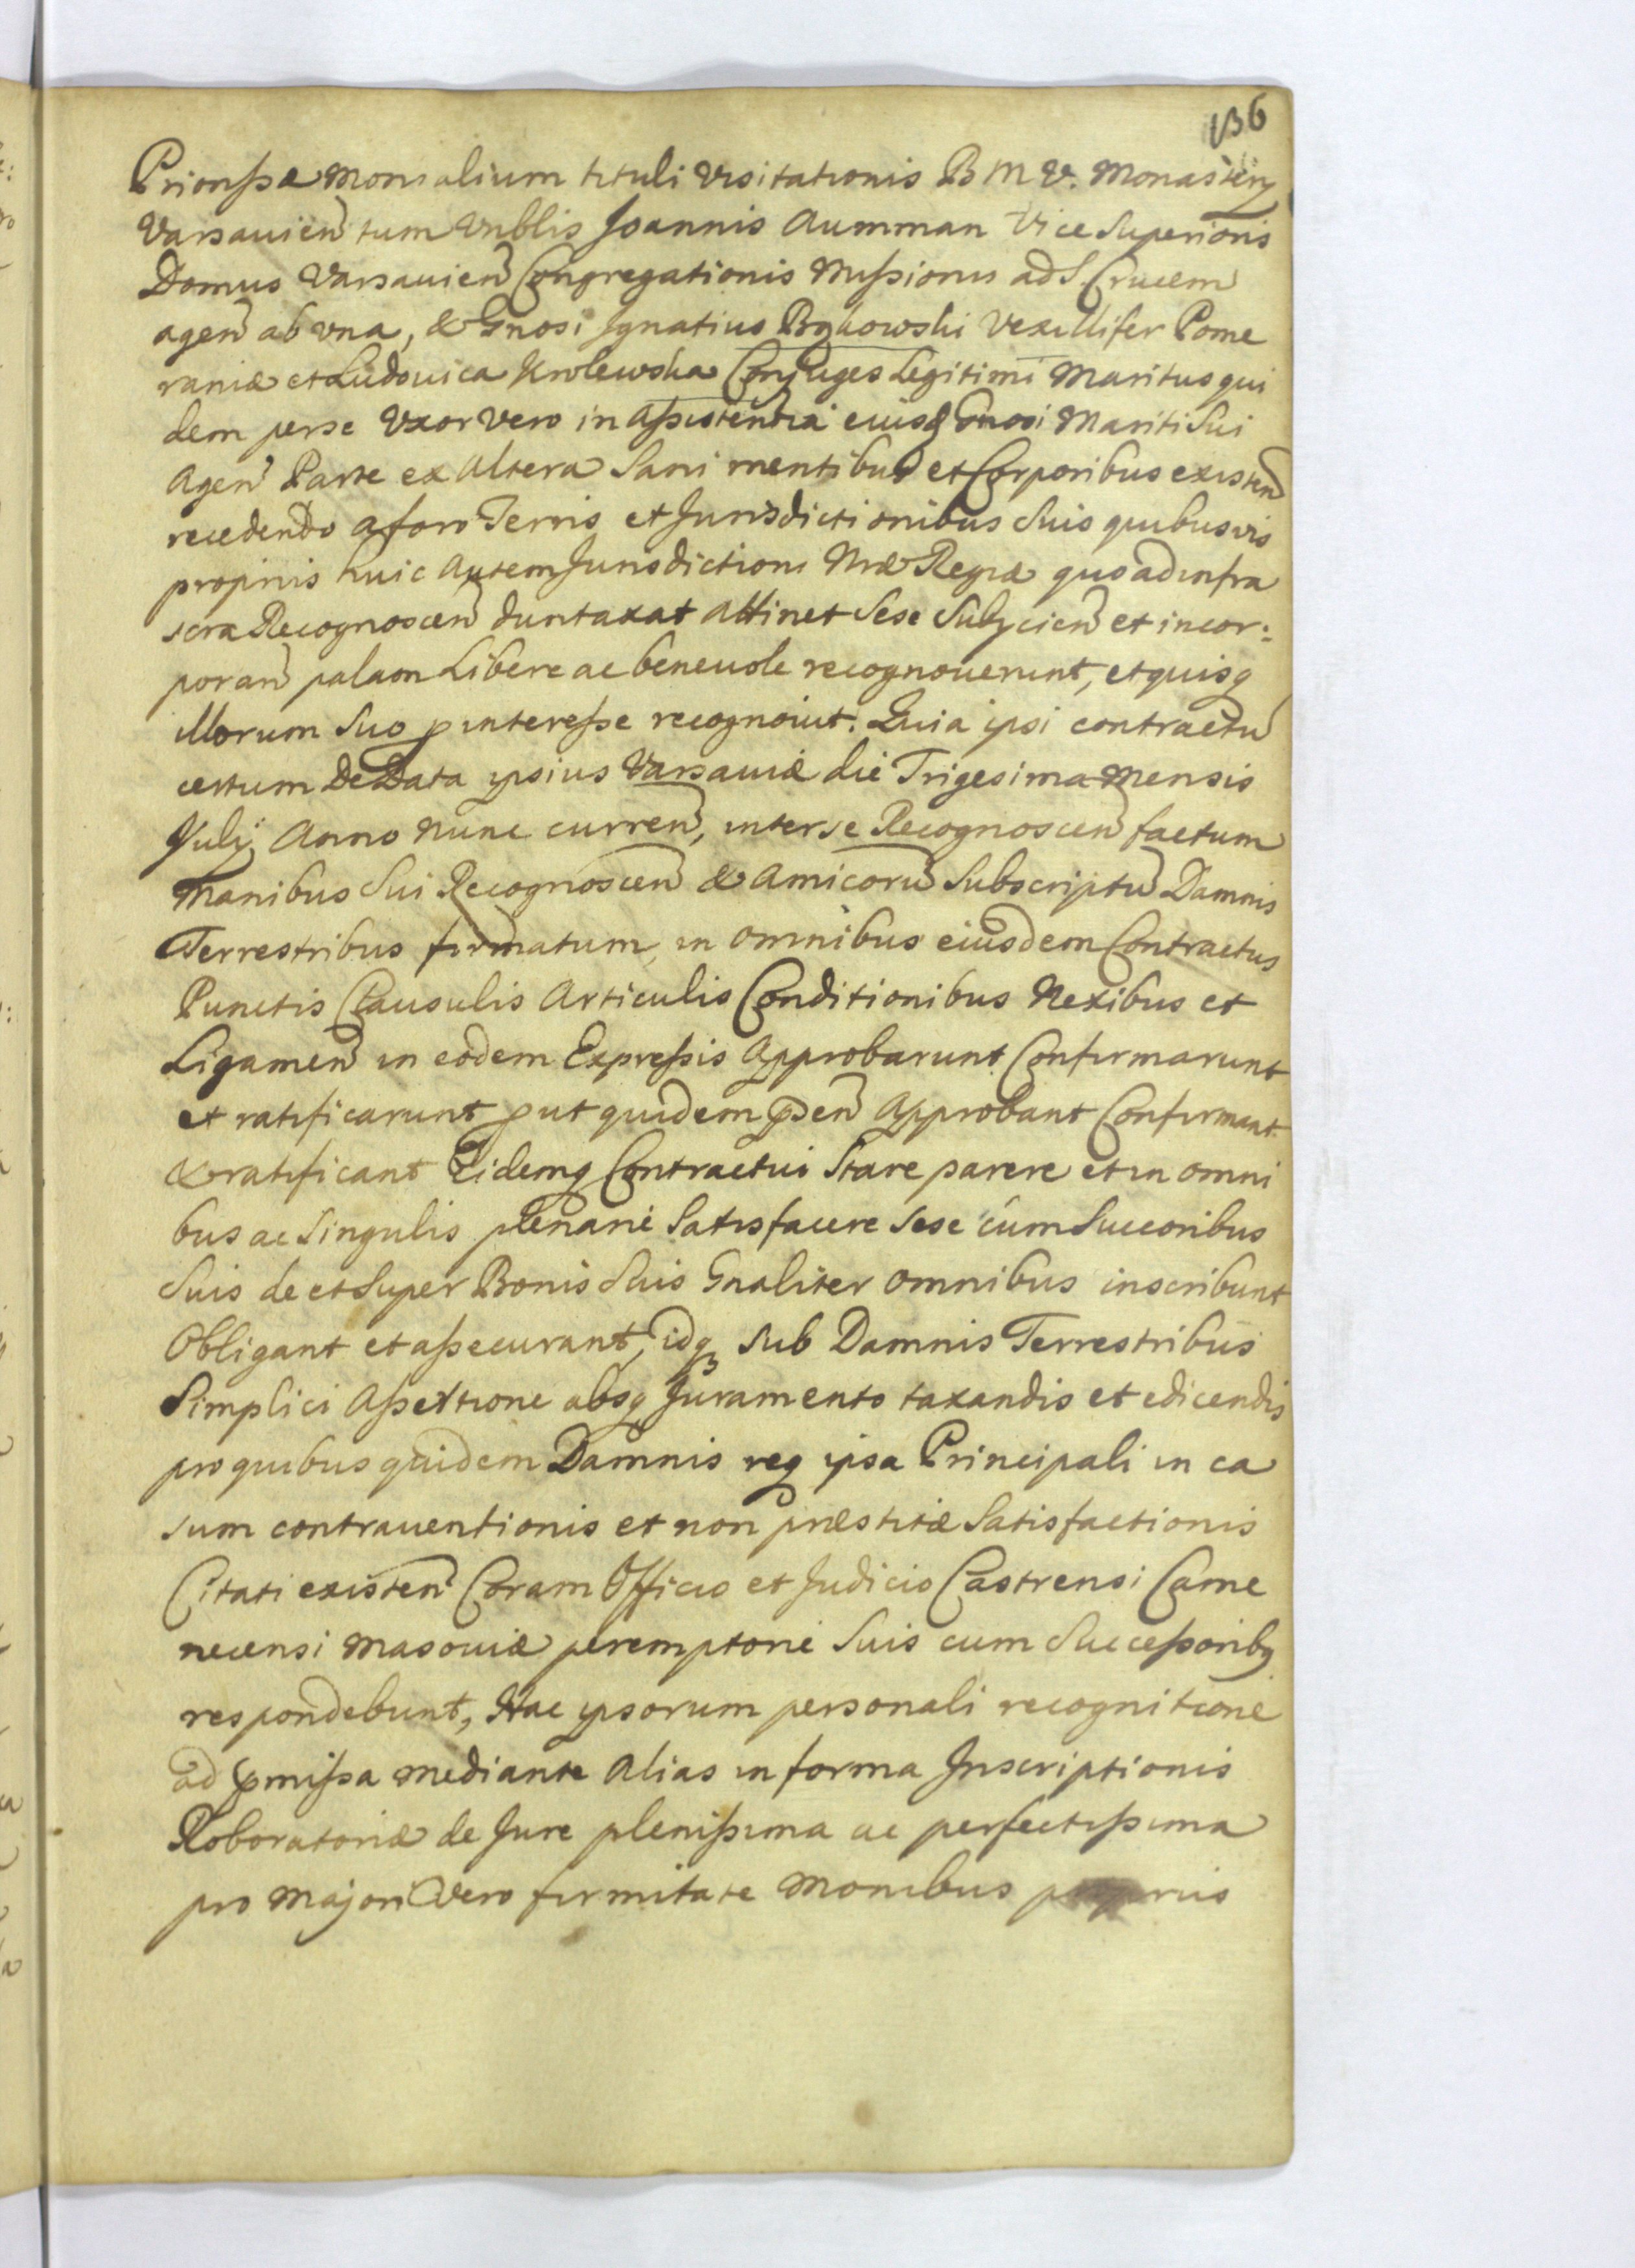 136
Priorissæ Monialium tituli Visitationis B M V. Monasterij
Varsauien tum Vnblis Joannis Aumman Vice Superioris
Domus Varsauien Congregationis Missionis ad S. Crucem
agen ab vna, & Gnosi Ignatius Bykowski Vexillifer Pome
raniæ et Ludouica Krolewska Conjuges Legitimi Maritus qui
dem per se Vxor Vero in assistentia eiusd Gnosi Mariti Sui
Agen Parte ex Altera Sani mentibus et Corporibus existen
recedendo a foro Terris et Jurisdictionibus Suis quibusvis
proprijs huic Autem Jurisdictioni Nræ Regiæ quo ad infra
scra Recognoscen duntaxat Attinet Sese Subijcien et incor:
poran palam Libere ac beneuole recognouerunt, et quisq
illorum Suo p interesse recognouit. Quia ipsi contractu
certum De Data ipsius Varsauiæ die Trigesima Mensis
Julij Anno Nunc curren, inter se Recognoscen factum
Manibus Sui Recognoscen & Amicoru Subscriptu Damnis
Terrestribus firmatum, in omnibus eiusdem Contractus
Punctis Clausulis Articulis Conditionibus Nexibus et
Ligamen in eodem Expressis Approbarunt Confirmarunt
et ratificarunt put quidem psen Approbant Confirmant
& ratificant Eidemq Contractui Stare parere et in omni
bus ac Singulis plenarie Satisfacere Sese cum Succoribus
Suis de et Super Bonis Suis Gnaliter omnibus inscribunt
Obligant et assecurant, idq sub Damnis Terrestribus
Simplici Assertione absq Juramento taxandis et edicendis
pro quibus quidem Damnis req ipsa Principali in ca
sum contrauentionis et non præstitæ Satisfactionis
Citati existen Coram Officio et Judicio Castrensi Came
necensi Masouiæ peremptorie Suis cum Successoribq
respondebunt, Hac ipsorum personali recognitione
ad pmissa mediante Alias in forma Inscriptionis
Roboratoriæ de Jure plenissima ac perfectissima
pro Majori Vero firmitate Manibus proprijs